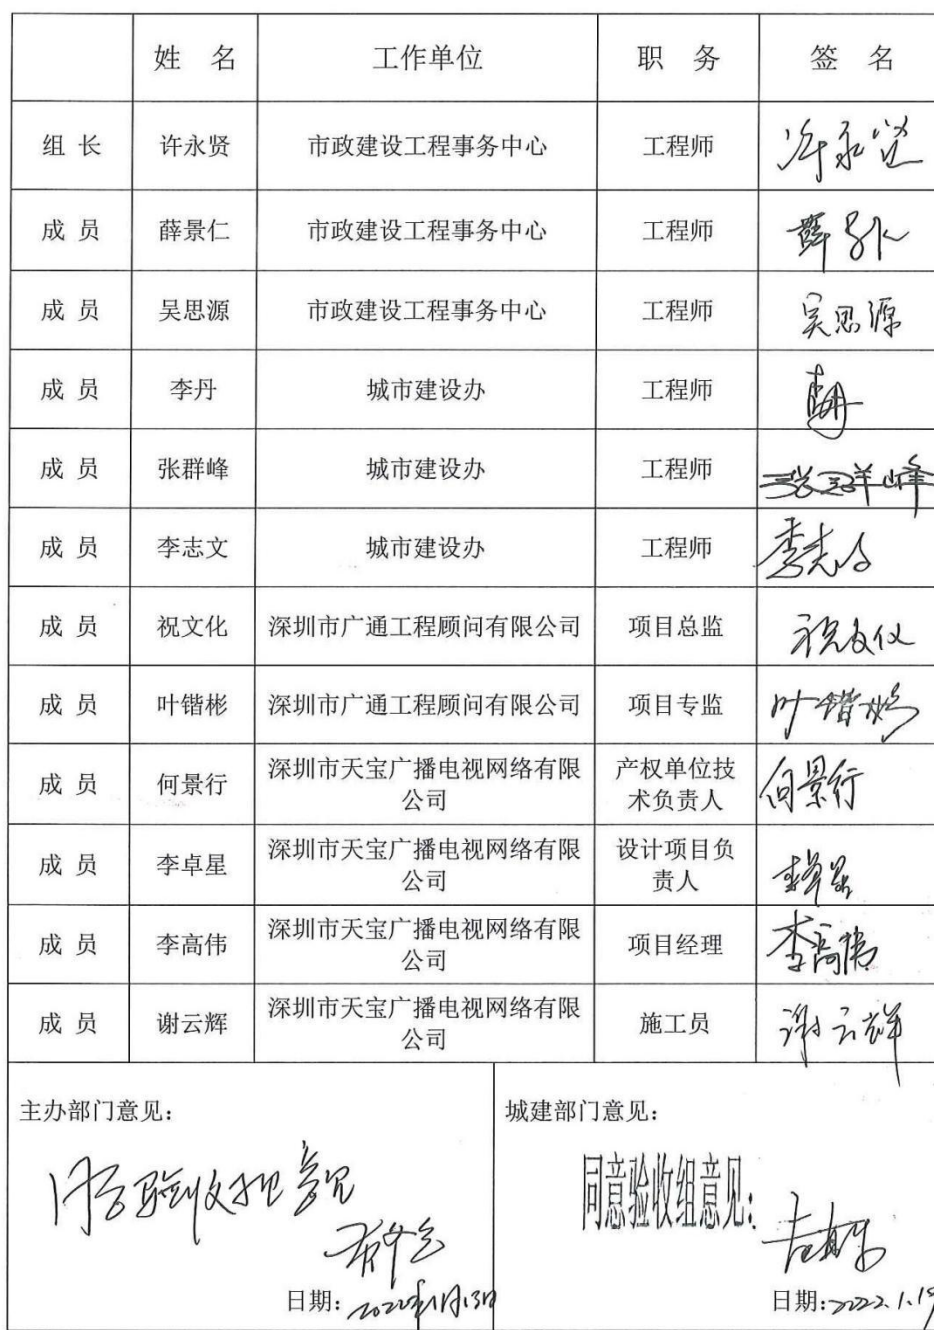 姓 名 工作单位 职 务 签 名
组 长 许永贤 市政建设工程事务中心 工程师 许永贤
成 员 薛景仁 市政建设工程事务中心 工程师 薛景仁
成 员 吴思源 市政建设工程事务中心 工程师 吴思源
成 员 李丹 城市建设办 工程师 李丹
成 员 张群峰 城市建设办 工程师 张群峰
成 员 李志文 城市建设办 工程师 李志文
成 员 祝文化 深圳市广通工程顾问有限公司 项目总监 祝文化
成 员 叶锴彬 深圳市广通工程顾问有限公司 项目专监 叶锴彬
成 员 何景行 深圳市天宝广播电视网络有限
公司 产权单位技
术负责人 何景行
成 员 李卓星 深圳市天宝广播电视网络有限
公司 设计项目负
责人 李卓星
成 员 李高伟 深圳市天宝广播电视网络有限
公司 项目经理 李高伟
成 员 谢云辉 深圳市天宝广播电视网络有限
公司 施工员 谢云辉
主办部门意见：
同意验收组意见
日期：2022年1月13日
城建部门意见：
同意验收组意见：
日期：2022.1.19